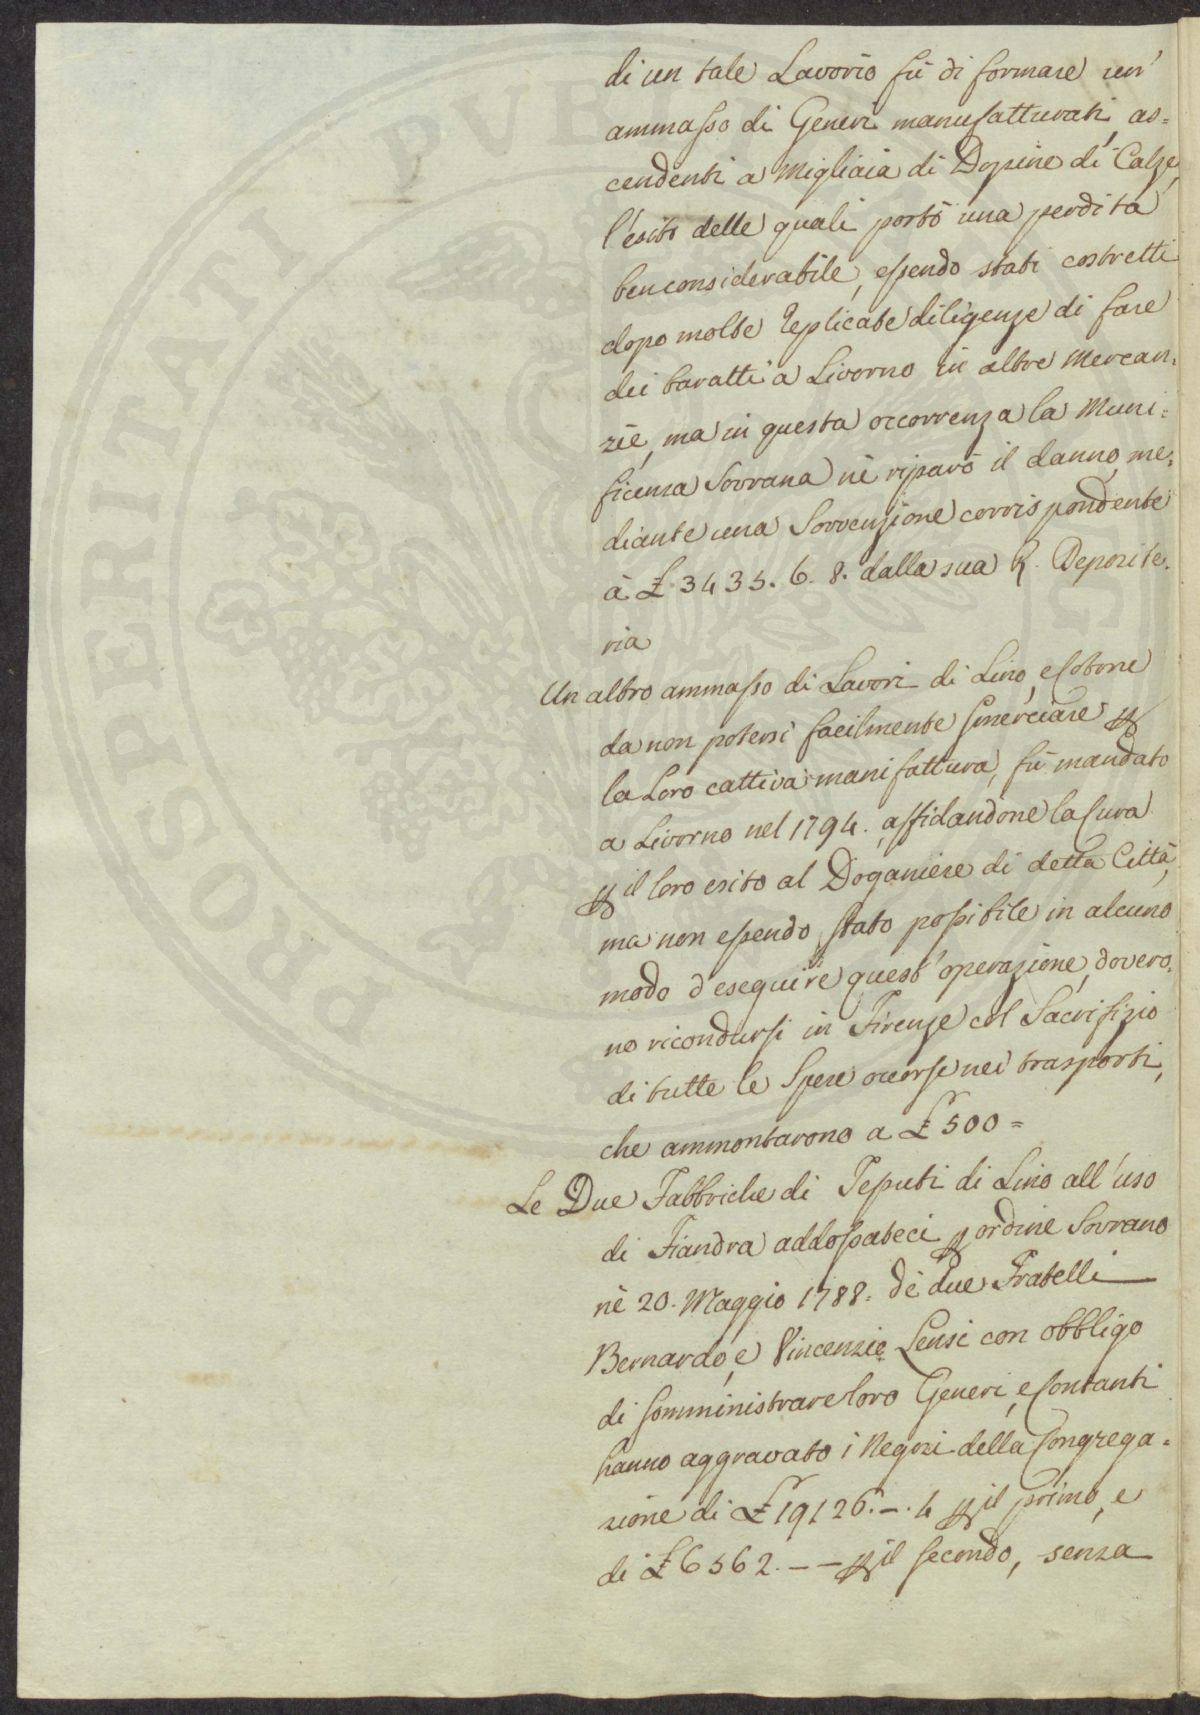 di un tale Lavorio fù di formare un'
ammasso di Generi manufatturati, as=
cendenti a Migliaia di Dozzine di Calze,
l'esito delle quali portò una perdita
ben considerabile, essendo stati costretti
dopo molte replicate diligenze di fare
dei baratti a Livorno in altre Mercan=
zie, ma in questa occorrenza la Muni=
ficenza Sovrana nè riparò il danno me=
diante una Sovvenzione corrispondente
à £ 3435. 6. 8. dalla sua R. Deposite=
ria
Un altro ammasso di Lavori di Lino, e Cotone
da non potersi facilmente smerciare p
la Loro cattiva manifattura, fù mandato
a Livorno nel 1794. affidandone la Cura
p il loro esito al Doganiere di detta Città,
ma non essendo stato possibile in alcuno
modo d'eseguire quest'operazione, dovero=
no ricondursi in Firenze col Sacrifizio
di tutte le Spese occorse nei trasporti,
che ammontarono a £ 500 =
Le Due Fabbriche di Tessuti di Lino all'uso
di Fiandra addossateci p ordine Sovrano
nè 20. Maggio 1788. de due Fratelli
Bernardo, e Vincenzio Lensi con obbligo
di somministrare loro Generi, e Contanti
hanno aggravato i Negozi della Congrega=
zione di £ 19126. –. 4 p il primo, e
di £ 6562. – – p il secondo, senza